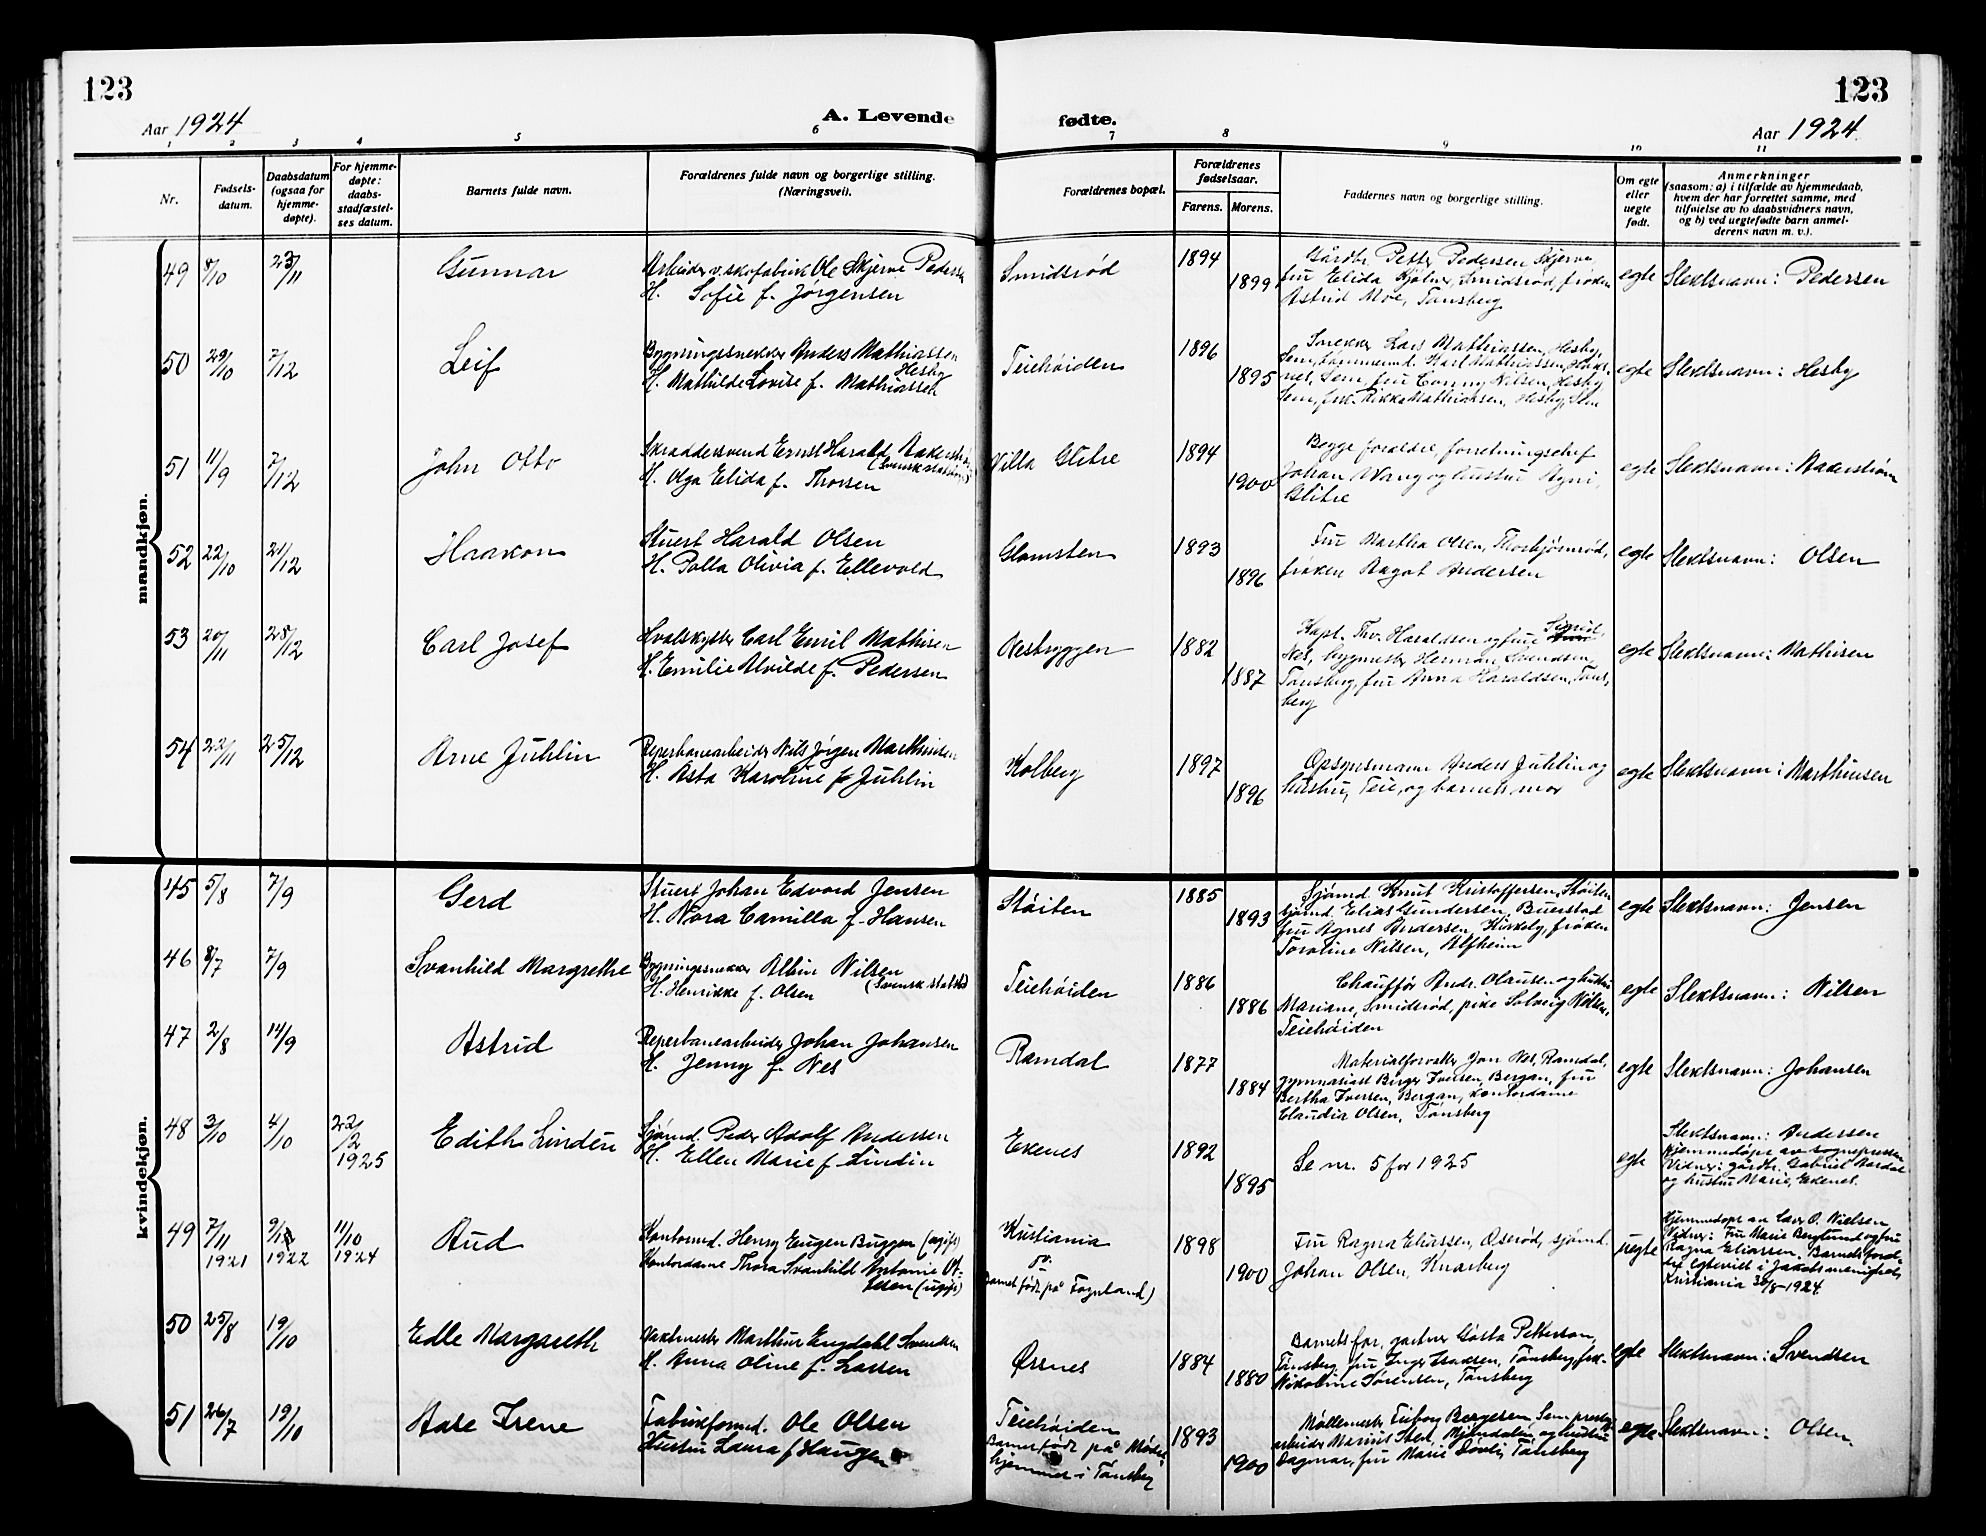 123
123
Aar 1924
A. Levende fødte.
Aar 1924.
1 2 3 4 5 6 7 8 9 10 11
Nr.
Fødsels-
datum.
Daabsdatum
(ogsaa for
hjemme-
døpte).
For hjemme-
døpte:
daabs-
stadfæstel-
ses datum.
Barnets fulde navn.
Forældrenes fulde navn og borgerlige stilling.
(Næringsvei).
Forældrenes bopæl.
Forældrenes
fødselsaar.
Farens. Morens.
Faddernes navn og borgerlige stilling.
Om egte
eller
uegte
født.
Anmerkninger
(saasom: a) i tilfælde av hjemmedaab,
hvem der har forrettet samme, med
tilføielse av to daabsvidners navn,
og b) ved uegtefødte barn anmel-
derens navn m. v.).
mandkjøn.
49 8/10 23/11 Gunnar
Arbeider v. skofabrik Ole Skjerve Pedersen
H. Sofie f. Jørgensen
Smidsrød 1894 1899
Gårdbr. Petter Pedersen Skjerve
fru Elida Smidsrød, frøken
Astrid Moe, Tønsberg
egte Slektsnavn: Pedersen
50 29/10 7/12 Leif
Bygningssnekker Anders Mathiassen
Hesby
H. Mathilde Lovise f. Mathiassen
Teiehøiden 1896 1895
Snekker Lars Mathiassen, Hesby,
Sem, tømmermd. Karl Mathiassen,
Sem, fru Conny Nilsen, Hesby
Sem, frk. Rikka Mathiassen, Hesby, Sem
egte Slektsnavn: Hesby
51 11/9 7/12 John Otto
Skraddersvend Ernst Harald
H. Olga Elida f. Thorsen
Villa Glitre 1894 1900
Begge foreldre, forretningschef
Johan Wang og hustru Agni,
Glitre
egte Slektsnavn: Naderstrøm
52 22/10 21/12 Haakon
Stuert Harald Olsen
H. Palla Olivia f. Ellevold
Glomsten 1893 1896
Fru Martha Olsen, Thorbjørnrød,
frøken Ragot Andersen
egte Slektsnavn: Olsen
53 20/11 28/12 Carl Josef
Hvalskytter Carl Emil Mathisen
H. Emilie Alvilde f. Pedersen
Nesbryggen 1882 1887
Kapt. Thv. Haraldsen og frue Sigrid,
Nes, bygmester Herman Svendsen,
Tønsberg, fru Anna Haraldsen, Tøns-
berg
egte Slektsnavn: Mathisen
54 22/11 25/12 Arne Juhlin
Reperbanearbeider Nils Jørgen Marthinsen
H. Asta Karoline f. Juhlin
Kolberg 1897 1896
Opsynsmann Anders Juhlin og
hustru, Teie, og barnets mor
egte Slektsnavn: Marthinsen
kvindekjøn.
45 5/8 7/9 Gerd
Stuert Johan Edvard Jensen
H. Nora Camilla f. Hansen
Støiten 1885 1893
Sjømd. Knut Kristoffersen, Støiten
sjømd. Elias Gundersen, Buerstad
fru Agnes Andersen, Kirkeby, frøken
Toraline Nilsen, Alfheim
egte Slektsnavn: Jensen
46 8/7 7/9 Svanhild Margrethe
Bygningssnekker Albin Nilsen
(Svensk statsb)
H. Henrikke f. Olsen
Teiehøiden 1886 1886
Chauffør Andr. Olausen og hustru
Mariane, Smidsrød, pike Solveig Nilsen,
Teiehøiden
egte Slektsnavn: Nilsen
47 2/8 14/9 Astrid
Reperbanearbeider Johan Johansen
H. Jenny f. Nes
Ramdal 1877 1884
Materialforvalter Jon Nes, Ramdal,
gymnasiast Birger Iversen, Bergan, fru
Bertha Iversen, Bergan, kontordame
Claudia Olsen, Tønsberg
egte Slektsnavn: Johansen
48 3/10 4/10 22/2 1925 Edith Lindin
Sjømd. Peder Adolf Andersen
H. Ellen Marie f. Lindin
Ekenes 1892 1895
Se nr. 5 for 1925
egte
Slektsnavn: Andersen
Hjemmedøpt av sognepresten
Vidner: gårdbr. Gabriel
og hustru Marie, Ekenes.
49 7/11 1921 9/12 1922 11/10 1924 Aud
Kontormd. Henry Eugen Buggen (ugift)
Kontordame Thora Svanhild Antonie Ol-
sen (ugift)
Kristiania
(Barnet født på Føynland)
1898 1900
Fru Ragna Eliassen, Oserød, sjømd.
Johan Olsen, Knarberg
uegte
Hjemmedøpt av O. Nielsen
Vidner: Fru Marie Berglund og fru
Ragna Eliassen. Barnets foreld-
re egteviet i Jakobs menighet,
Kristiania 30/8-1924
50 25/8 19/10 Edle Margareth
Vaktmester Marthin Engdahl Svendsen
H. Anna Oline f. Larsen
Ørsnes 1884 1880
Barnets far, gartner Gösta Petterson,
Tønsberg, fru Inger Isaksen, Tønsberg, frk.
Nikoline Sørensen, Tønsberg
egte Slektsnavn: Svendsen
51 26/7 19/10 Aase Irene
Fabrikformd. Ole Olsen
Hustru Laura f. Haugen
Teiehøiden
Barnet født på Mødre-
hjemmet i Tønsberg
1893 1900
Møllemester Bergersen, Sem,
arbeider Marius Mjøndalen og hustru
Dagmar, fru Marie Tønsberg
egte Slektsnavn: Olsen.